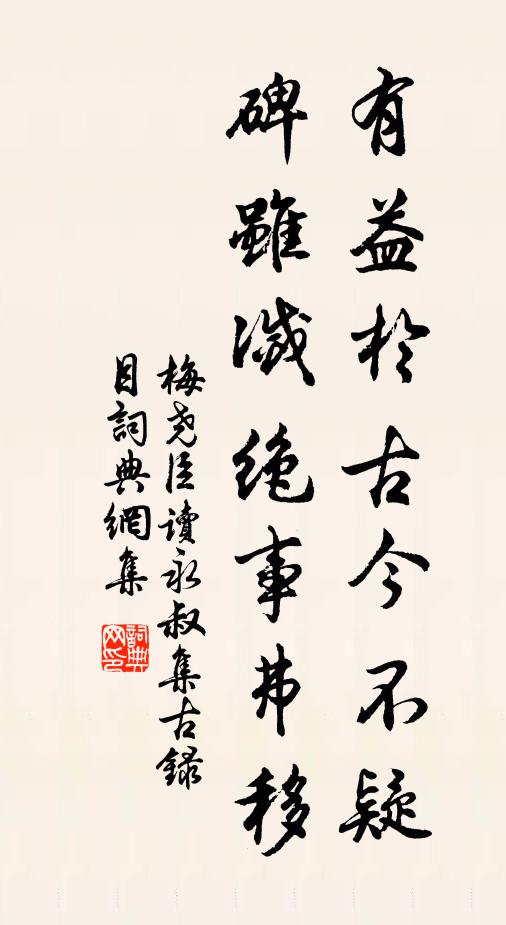 有益於古今不疑
碑雖滅絶事弗移
梅堯臣讀永叔集古録
目詞典網集
詞典網印